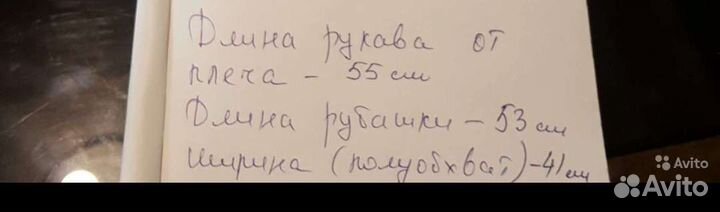 Длина рукава от
плеча - 55 см
Длина рубашки - 53 см
ширина (полуобхват) - 41 см
Avito
Avito